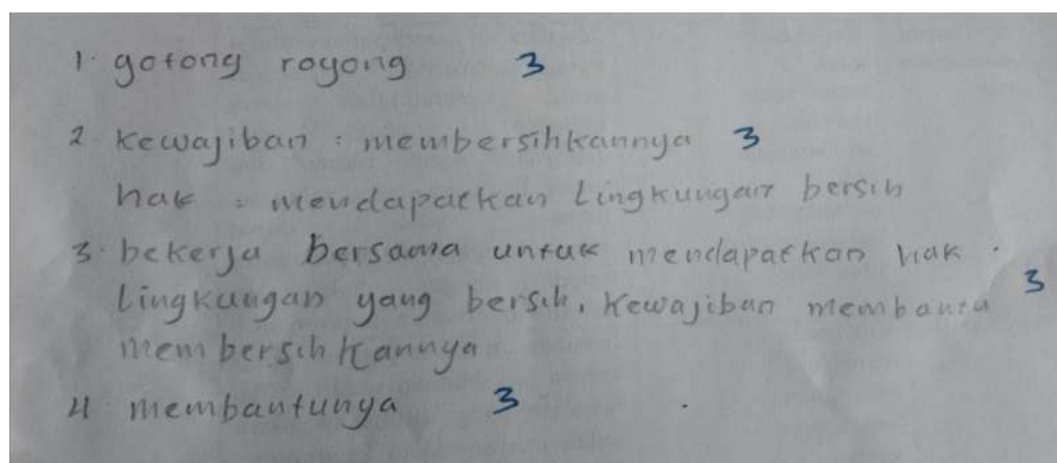 1. gotong royong 3
2. Kewajiban : membersihkannya 3
hak : mendapatkan Lingkungan bersih
3. bekerja bersama untuk mendapatkan hak
Lingkungan yang bersih, Kewajiban membantu 3
membersihkannya
4 membantunya 3